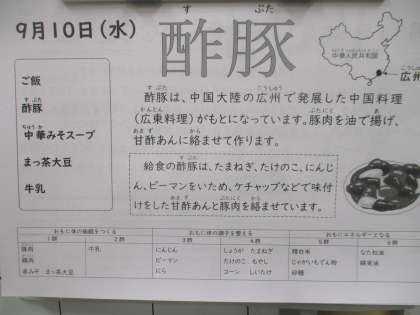 9月10日(水)
すぶた
酢豚
ちゅうかじんみんきょうわこく
中華人民共和国
こうしゅう
広州
ご飯
すぶた
酢豚
ちゅうか
中華みそスープ
まっ茶大豆
牛乳
すぶた こうしゅう
酢豚は、中国大陸の広州で発展した中国料理
かんとん ぶたにく あ
(広東料理)がもとになっています。豚肉を油で揚げ、
あまず から
甘酢あんに絡ませて作ります。
すぶた
給食の酢豚は、たまねぎ、たけのこ、にんじ
ん、ピーマンをいため、ケチャップなどで味付
あまず ぶたにく から
けをした甘酢あんと豚肉を絡ませています。
おもに体の組織をつくる おもに体の調子を整える おもにエネルギーとなる
1群 2群 3群 4群 5群 6群
豚肉 牛乳 にんじん しょうが たまねぎ 精白米 なたね油
鶏肉 ピーマン たけのこ もやし じゃがいもでん粉
赤みそ まっ茶大豆 にら コーン しいたけ 砂糖